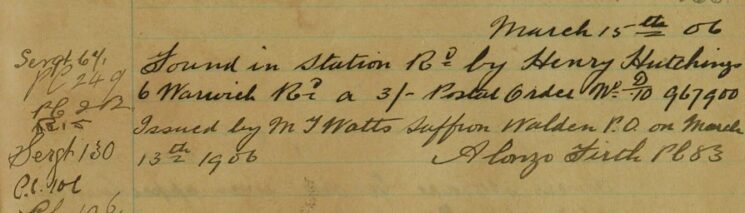 March 15th 06
Sergt 64
Found in Station Rd by Henry Hutchings
PC 249
6 Warwick Rd a 3/- Postal Order No D/10 967900
PC 22
Issued by M J Watts Saffron Walden P.O. on March
Sergt 130
13th 1906 Alonzo Firth PC 83
P.C. 101